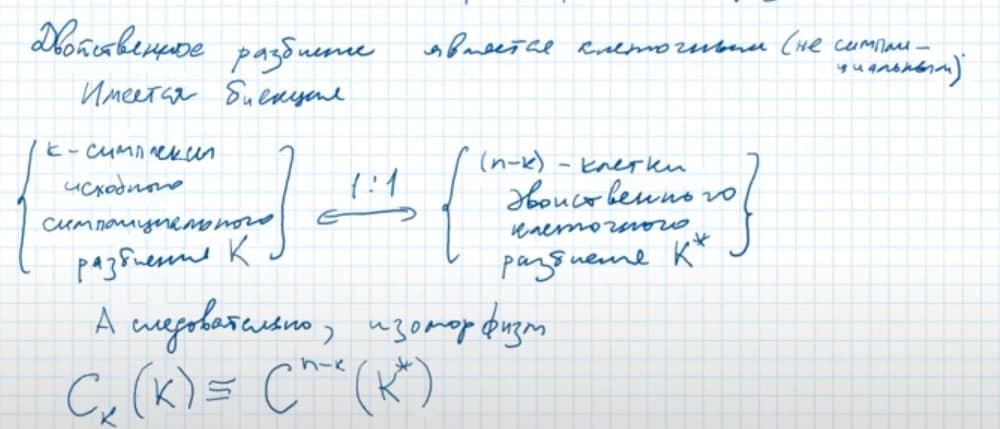 Двойственное разбиение является клеточным (не симпли-
циальным).
Имеется биекция
{ k-симплексы исходного симплициального разбиения K } <-- 1:1 --> { (n-k)-клетки двойственного клеточного разбиения K* }
А следовательно, изоморфизм
C_k(K) ≡ C^{n-k}(K*)